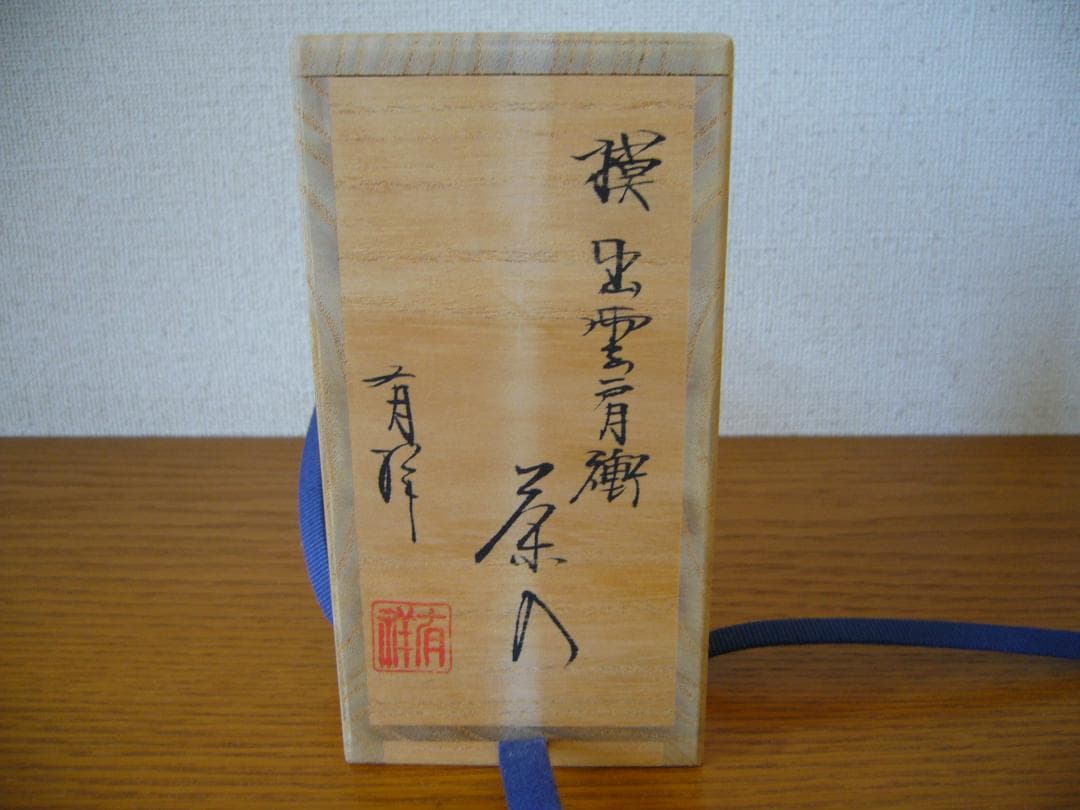 模 出雲肩衝
茶入
有祥
有祥